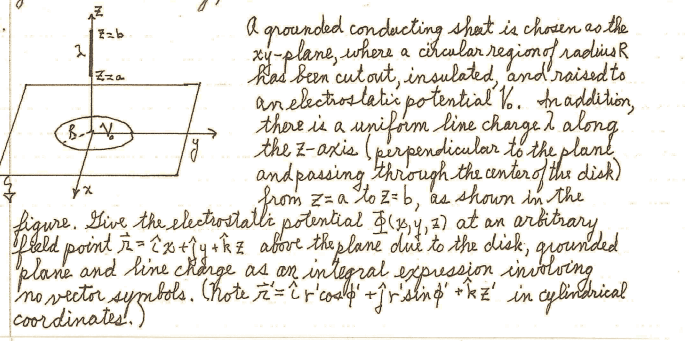 z
z=b
λ
z=a
R
V₀
y
x
A grounded conducting sheet is chosen as the
xy-plane, where a circular region of radius R
has been cut out, insulated, and raised to
an electrostatic potential V₀. In addition,
there is a uniform line charge λ along
the z-axis (perpendicular to the plane
and passing through the center of the disk)
from z=a to z=b, as shown in the
figure. Give the electrostatic potential Φ(x,y,z) at an arbitrary
field point r⃗ = îx + ĵy + k̂z above the plane due to the disk, grounded
plane and line charge as an integral expression involving
no vector symbols. (Note r⃗' = î r'cosφ' + ĵ r'sinφ' + k̂z' in cylindrical
coordinates.)